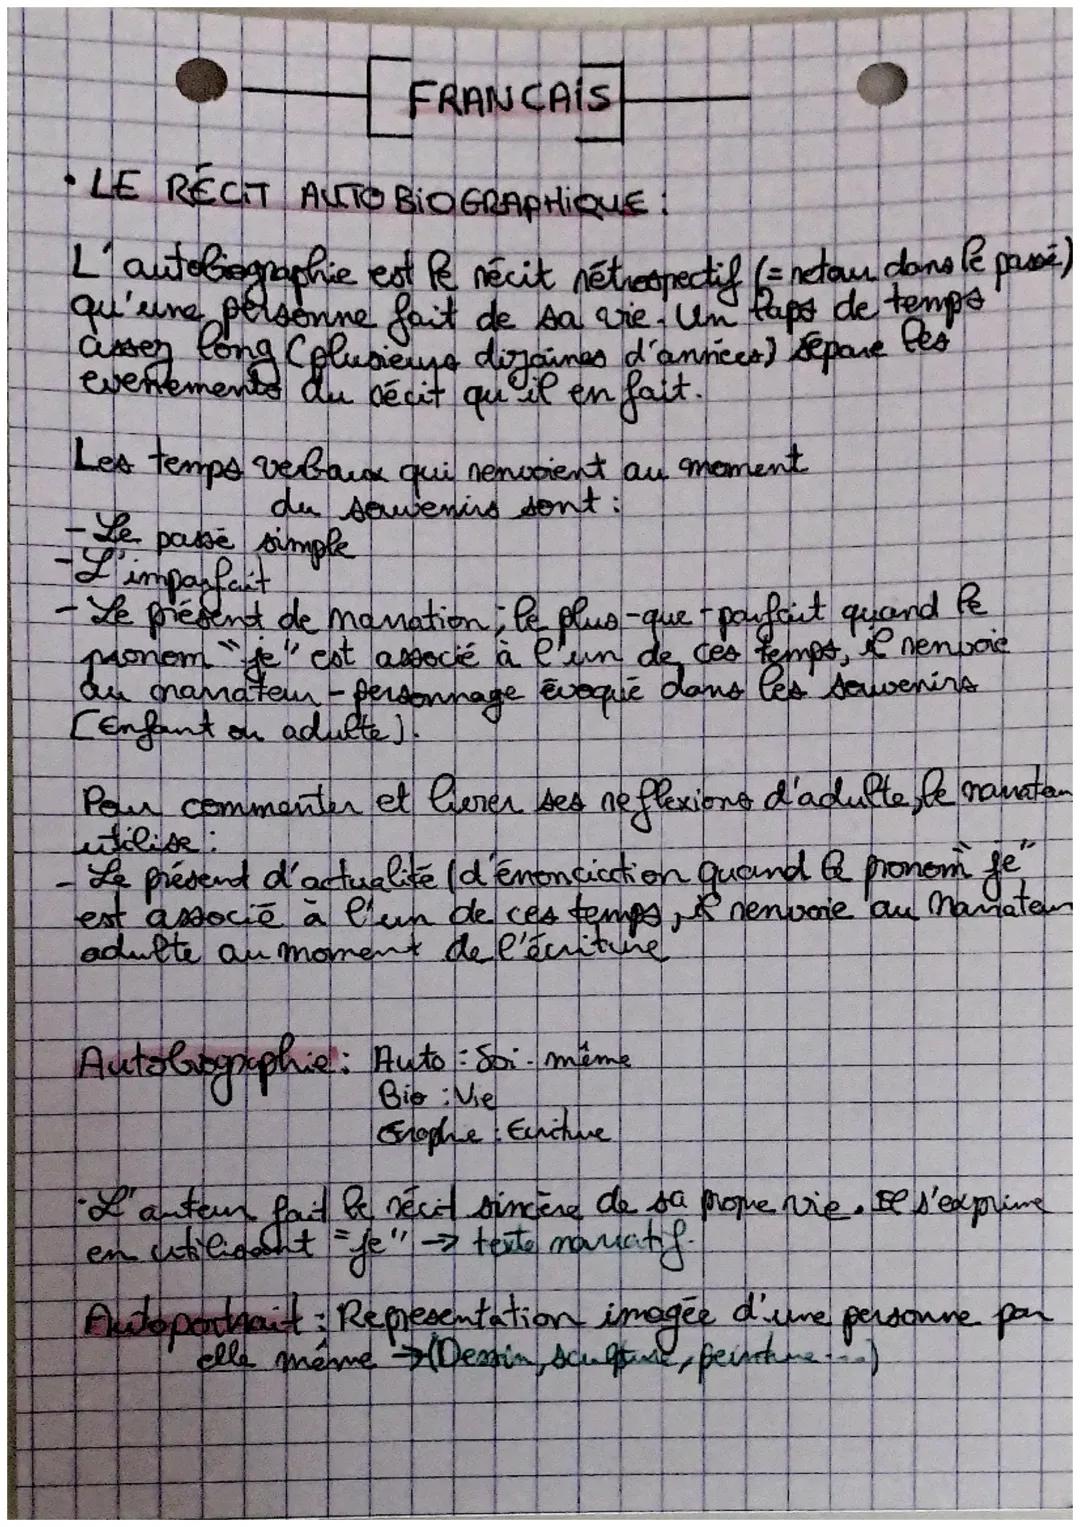 FRANCAIS
• LE RÉCIT AUTOBIOGRAPHIQUE :
L'autobiographie est le récit rétrospectif (= retour dans le passé)
qu'une personne fait de sa vie. Un laps de temps
assez long (plusieurs dizaines d'années) sépare les
evenements du récit qu'il en fait.
Les temps verbaux qui renvoient au moment
du souvenirs sont :
- Le passé simple
- L'imparfait
- Le présent de narration ; le plus-que-parfait quand le
pronom "je" est associé à l'un de ces temps, il renvoie
au narrateur-personnage évoqué dans les souvenirs
[Enfant ou adulte].
Pour commenter et livrer ses reflexions d'adulte, le narrateur
utilise :
- Le présent d'actualité (d'énonciation quand le pronom "je"
est associé à l'un de ces temps, il renvoie au narrateur
adulte au moment de l'écriture
Autobiographie : Auto : Soi-même
Bio : Vie
Graphe : Ecriture
• L'auteur fait le récit sincère de sa propre vie. Il s'exprime
en utilisant "je" → texte narratif.
Autoportrait : Representation imagée d'une personne par
elle même → (Dessin, sculpture, peinture...)